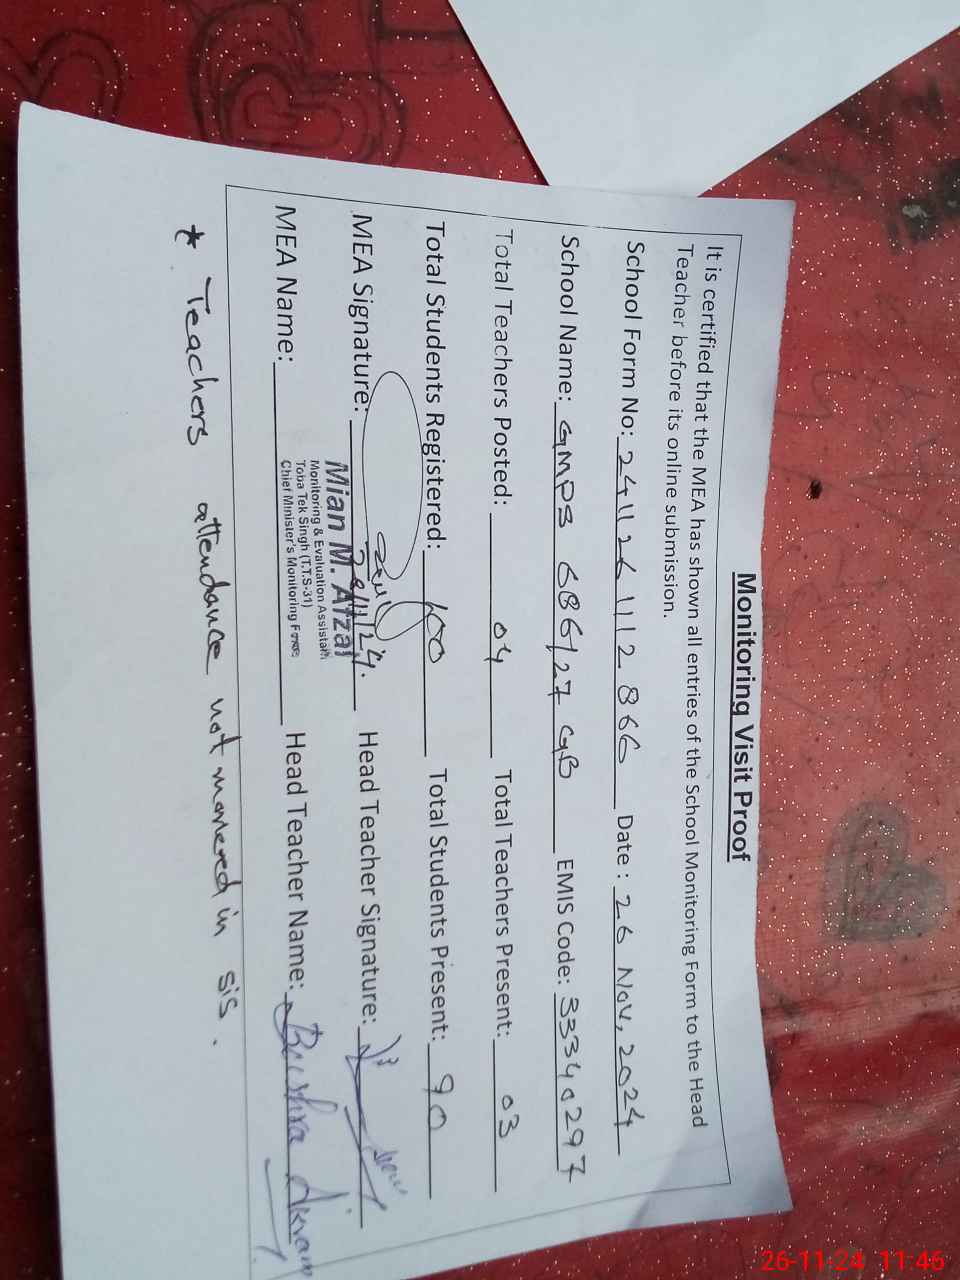 Monitoring Visit Proof
It is certified that the MEA has shown all entries of the School Monitoring Form to the Head
Teacher before its online submission.
School Form No: 241126 1112866 Date : 26 Nov, 2024
School Name: GMPS 686/27 GB EMIS Code: 33340297
Total Teachers Posted: 04 Total Teachers Present: 03
Total Students Registered: 100 Total Students Present: 90
MEA Signature: 26/11/24. Head Teacher Signature:
MEA Name: Mian M. Afzal Head Teacher Name: Bushra Akram
Monitoring & Evaluation Assistant
Toba Tek Singh (T.T.S-31)
Chief Minister's Monitoring Force
* Teachers attendance not marked in sis.
26-11-24 11:46